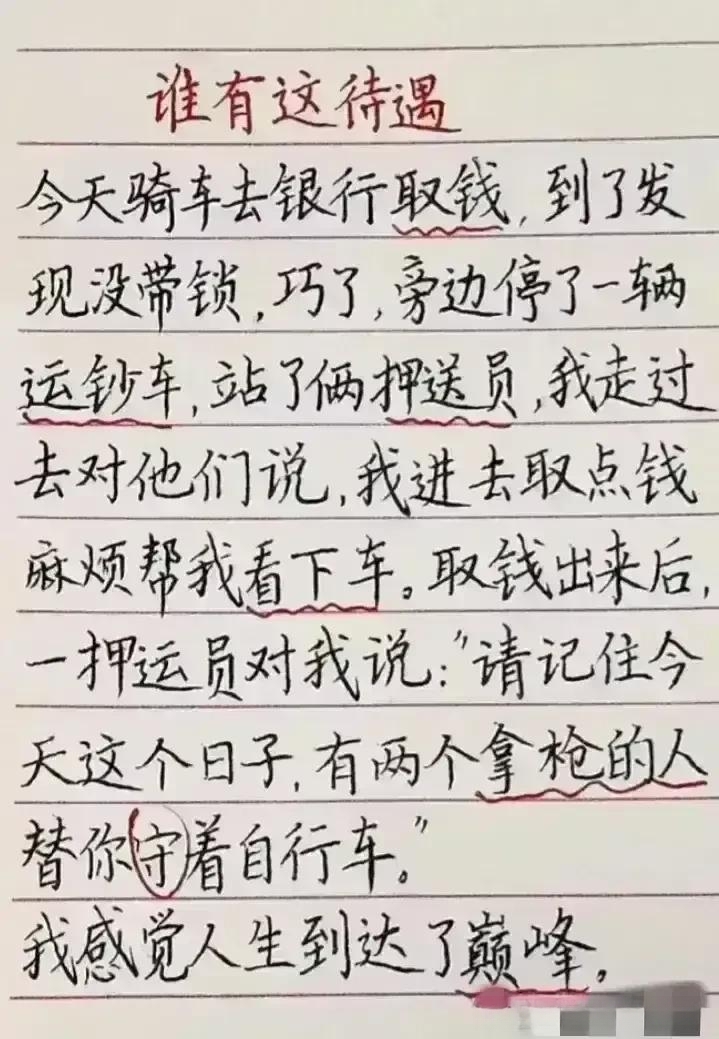 谁有这待遇
今天骑车去银行取钱，到了发
现没带锁，巧了，旁边停了一辆
运钞车，站了俩押送员，我走过
去对他们说，我进去取点钱
麻烦帮我看下车。取钱出来后，
一押运员对我说："请记住今
天这个日子，有两个拿枪的人
替你守着自行车。"
我感觉人生到达了巅峰。